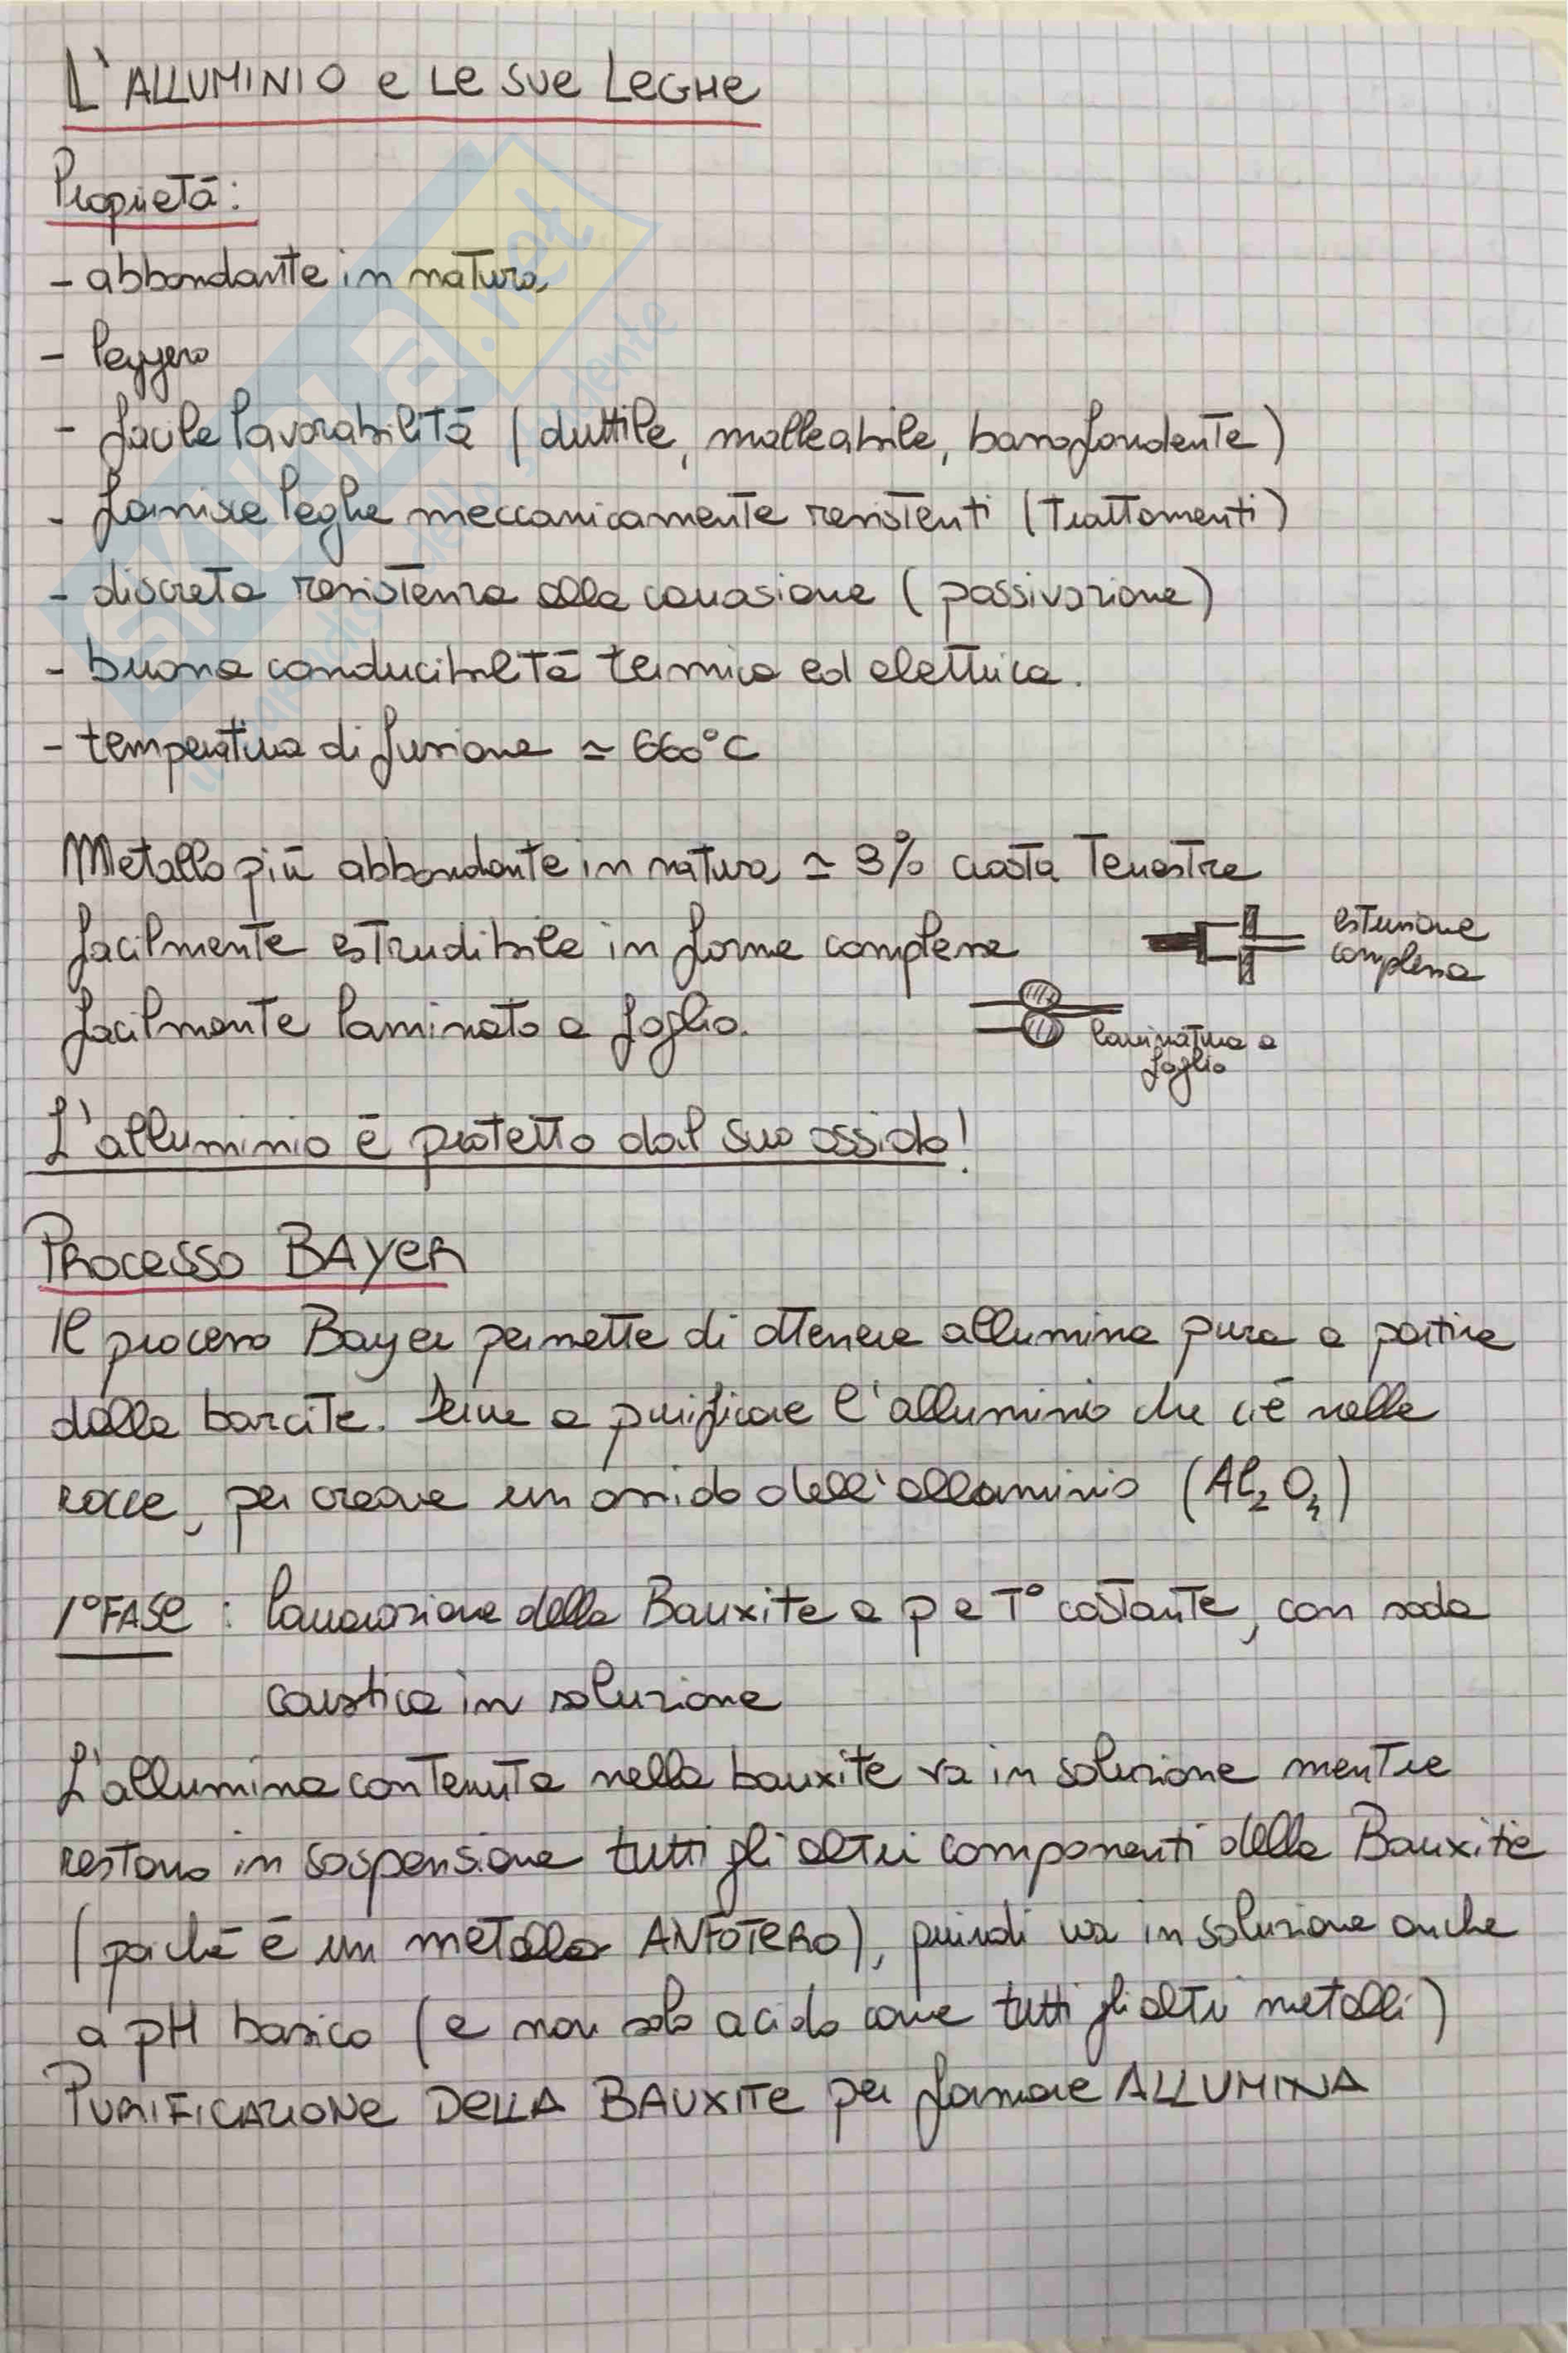 L'ALLUMINIO e LE SUE LEGHE
Proprietà:
- abbondante in natura
- leggero
- facile lavorabilità (duttile, malleabile, bassofondente)
- fornisce leghe meccanicamente resistenti (trattamenti)
- discreta resistenza alla corrosione (passivazione)
- buona conducibilità termica ed elettrica.
- temperatura di fusione ≃ 660°C
Metallo più abbondante in natura ≃ 9% crosta terrestre
facilmente estrudibile in forme complesse
estrusione
complessa
facilmente laminato a foglio.
laminatura a
foglio
L'alluminio è protetto dal suo ossido!
PROCESSO BAYER
Il processo Bayer permette di ottenere allumina pura a partire
dalla. Serve a purificare l'alluminio che c'è nelle
rocce, per creare un ossido dell'alluminio (Al₂O₃)
1° FASE: lavorazione della Bauxite a p e T° costante, con soda
caustica in soluzione
L'allumina contenuta nella bauxite va in soluzione mentre
restano in sospensione tutti gli altri componenti della Bauxite
(poiché è un metallo ANFOTERO), quindi va in soluzione anche
a pH basico (e non solo acido come tutti gli altri metalli)
PURIFICAZIONE DELLA BAUXITE per formare ALLUMINA
SKUOLA.net